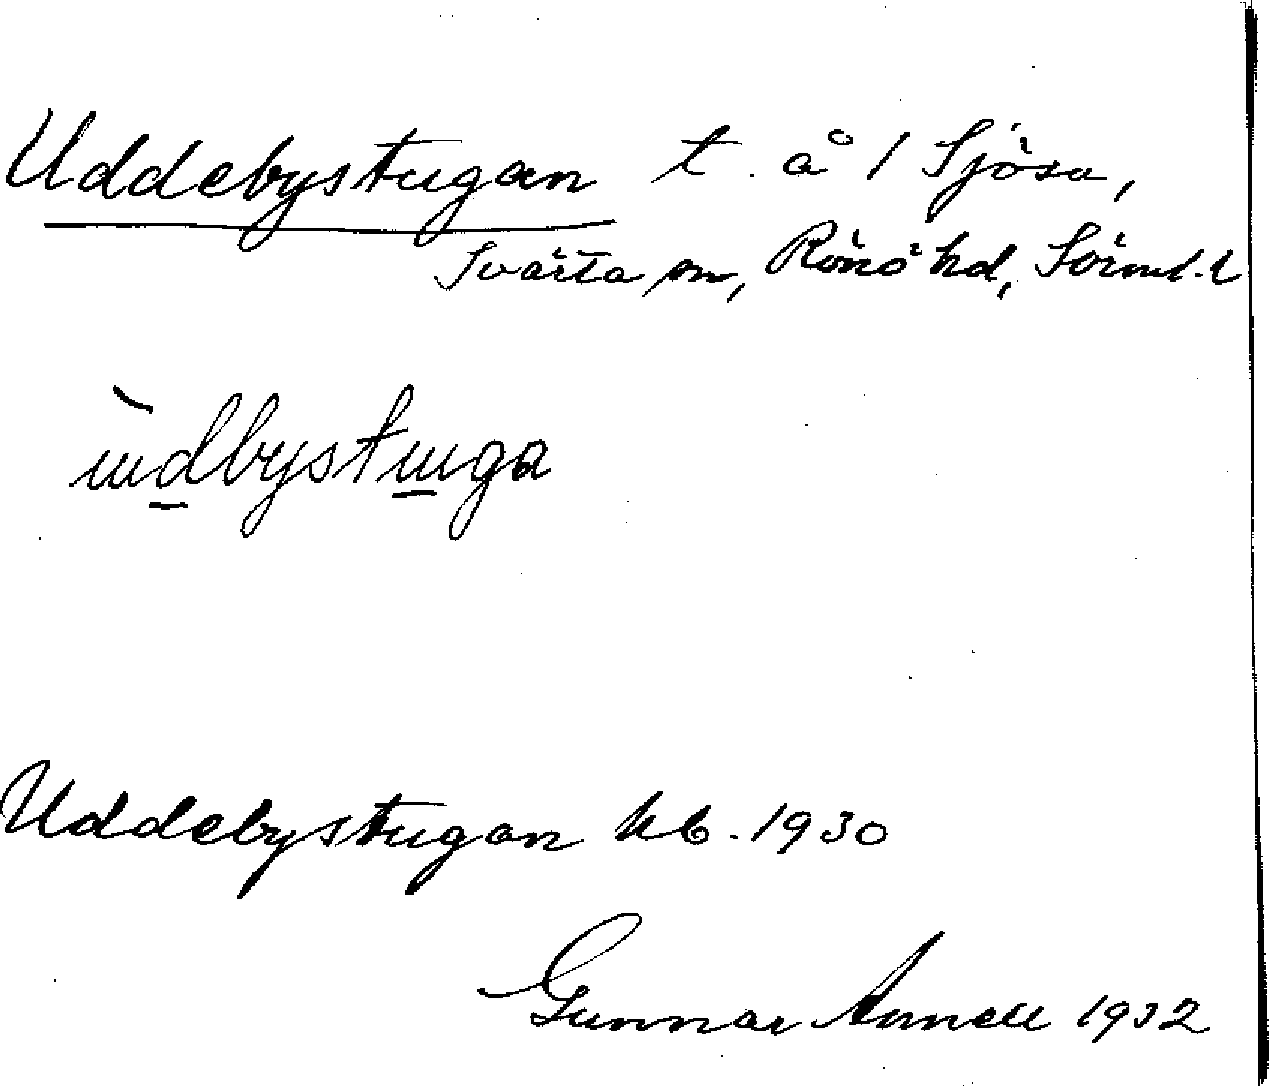 Uddebystugan t. å 1 Sjösa,
Svärta sn, Rönö hd, Sörml. l
ùdbystuga
Uddebystugan kb. 1930
Gunnar Annell 1932